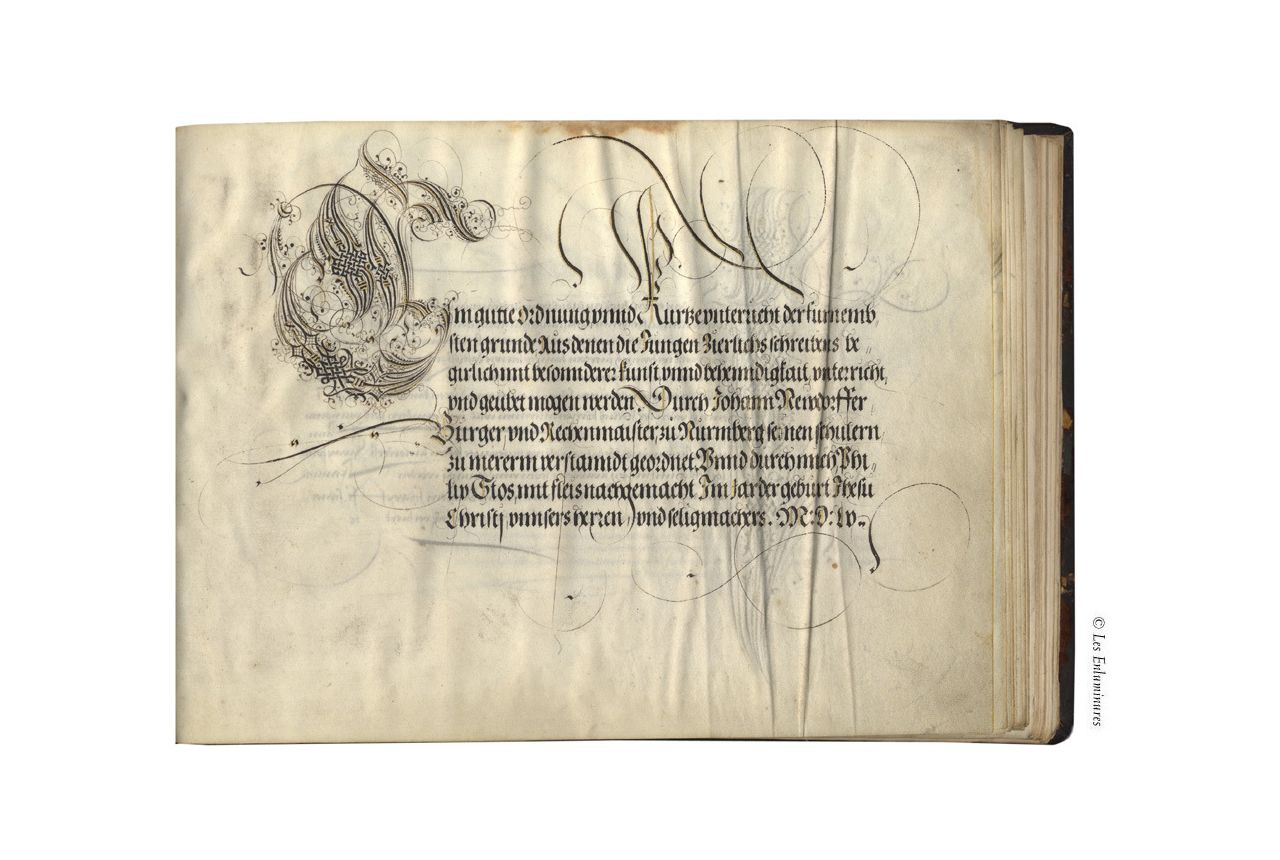 Ein gutte Ordnung vnnd Kurtze vnterricht der furnemb„
sten grunde Aus denen die Jungen Zierlichs schreibens be„
girlich mit besonnderer kunst vnnd behenndigkait, vnterricht,
vnd geubet mogen werden. Durch Johann Newdorffer
Burger, vnd Rechenmaister, zu Nurmberg seinen schulern,
zu mererm verstanndt geordnet. Vnnd durch mich Phi„
lip Stos, mit fleis nachgemacht Im Jar der geburt Jhesu
Christj, vnnsers herren, vnd seligmachers. M: D: lv.
© Les Enluminures